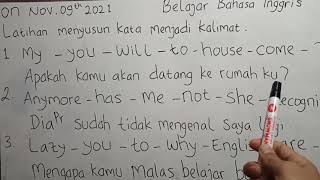 ON NOV. 09th 2021 Belajar Bahasa Inggris
Latihan menyusun kata menjadi kalimat.
1 My - you - will - to - house - come - ?
Apakah kamu akan datang ke rumah ku?
2. Anymore - has - me - not - she - recogni
Dia Pr sudah tidak mengenal saya lagi
3. Lazy - you - to - why - English - are -
Mengapa kamu Malas belajar b